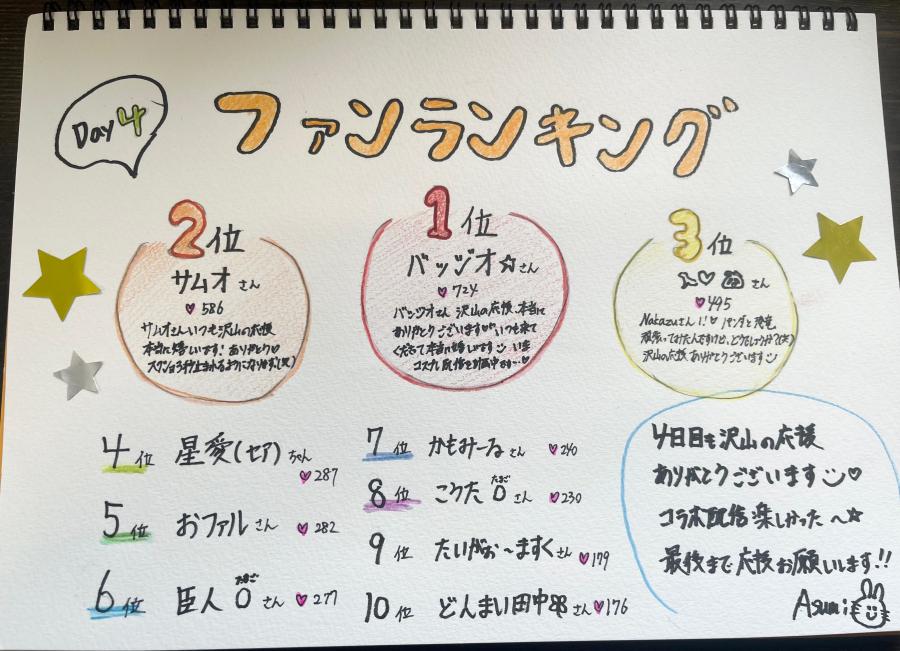 Day 4
ファンランキング
2位
サムオ さん
♥586
サムオさんいつも沢山の応援
本当に嬉しいです! ありがとう♡
1位
バッジオ☆さん
♥724
バッジオさん 沢山の応援、本当に
ありがとうございます♡いつも来て
くださって本当に嬉しいです
コスプレ配信を計画中です
3位
さん
♥495
Nakazuさん!!♡ パンダと恐竜
頑張ってみたんですけど、どうでしょうか?(笑)
沢山の応援ありがとうございます
4位 星愛(セア)ちゃん
♥287
5位 おファルさん ♥282
6位 臣人 たまご 0 さん ♥277
7位 かもみーるさん ♥240
8位 こうた たまご 0 さん ♥230
9位 たいがぁ〜ますくさん ♥179
10位 どんまい田中 さん ♥176
4日目も沢山の応援
ありがとうございます♡
コラボ配信楽しかった〜☆
最後まで応援お願いします!!
Asumi